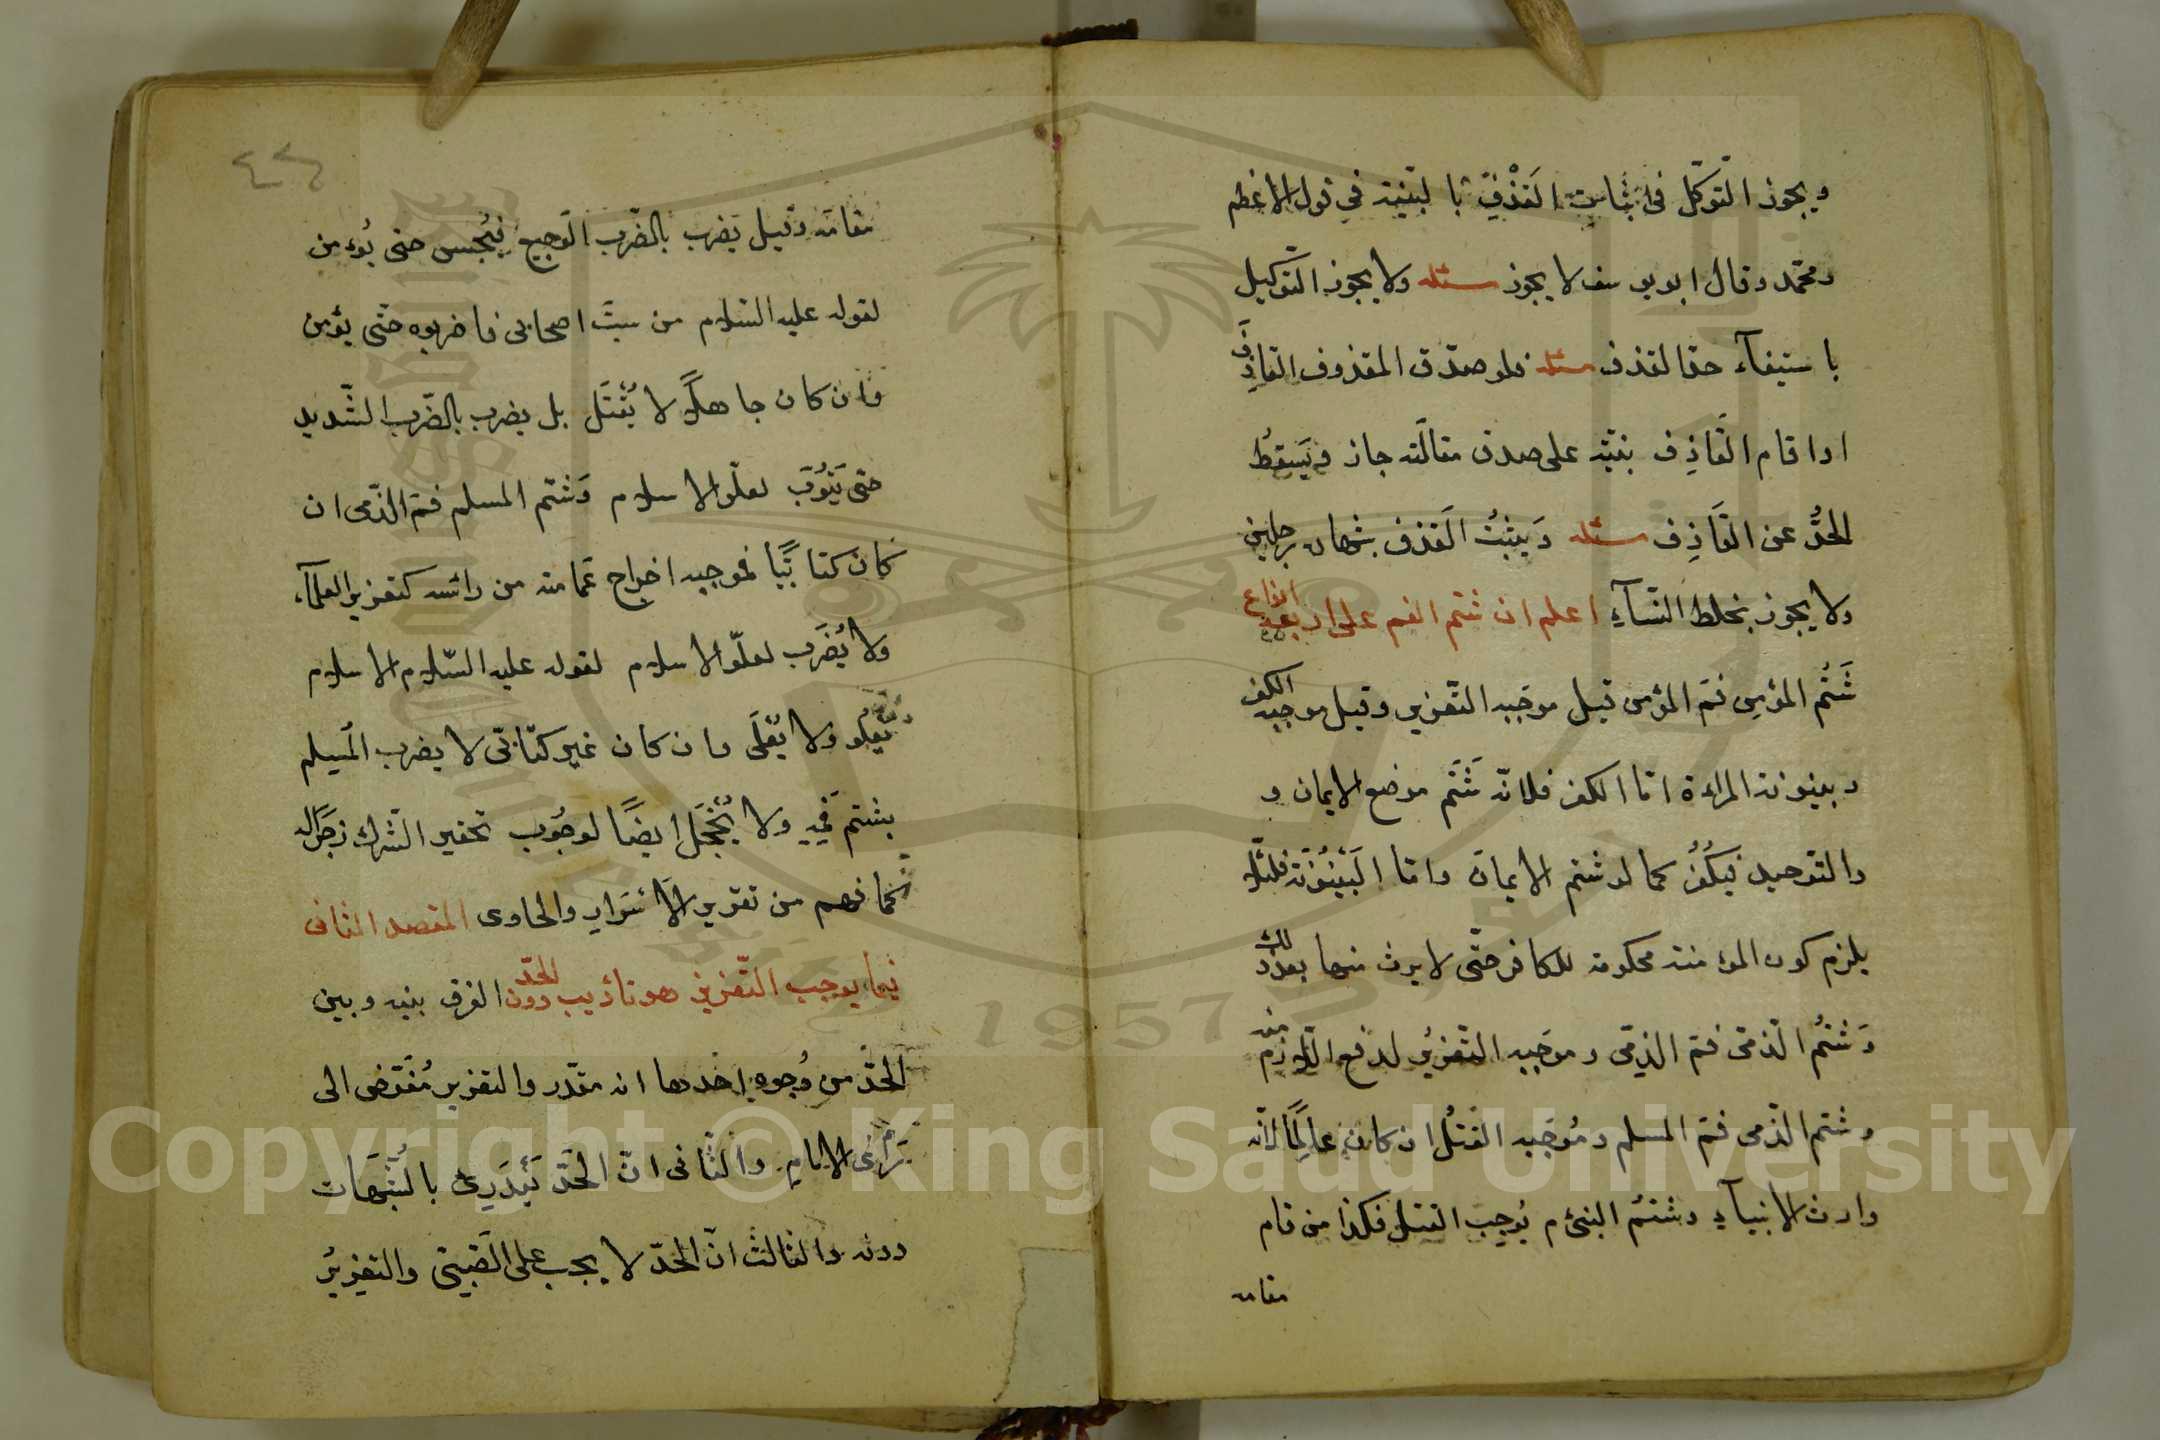 ويجوز التوكل فى اثبات القذف بالبينة في قول الاعظم
ومحمد وقال ابو يوسف لا يجوز مسئله ولا يجوز التوكيل
باستيفآء حد القذف مسئله فلو صدّق المقذوف القاذف
او اقام القاذف بينة على صدق مقالته جاز ويسقط
الحدُّ عن القاذف مسئله ويثبت القذف بشهادة رجلين
ولا يجوز بخلط النسآء اعلم ان شتم الفم على اربعة انواع
شتم المؤمن فم المؤمن قيل موجبه التعزير وقيل موجبه الكفر
وبينونة المراءة اما الكفر فلانّه شتم موضع الايمان و
والتوحيد فيكفر كما لو شتم الايمان واما البينونة فلئلا
يلزم كون المؤمنة محكومة للكافر حتى لا يرث منها بعد ذلك
وشتم الذمى فم الذمى وموجبه التعزير لدفع اللازم منه
وشتم الذمى فم المسلم وموجبه القتل ان كان عالما لانّه
وارث الانبيآء وشتم النبى م يوجب القتل فكذا من قام
مقامه
٤٤
مقامه وقيل يضرب بالضرب الوجيع فيحبس حتى يؤمن
لقوله عليه السلام من سبّ اصحابى فاضربوه حتى يؤمن
وان كان جاهلا لا يقتل بل يضرب بالضرب الشديد
حتى يتوب لعلو الاسلام وشتم المسلم فم الذمى ان
كان كتابيا فموجبه اخراج عمامته من رائسه كتعزير العلمآء
ولا يضرب لعلو الاسلام لقوله عليه السلام الاسلام
يعلو ولا يعلى وان كان غير كتابى لا يضرب المسلم
بشتم فيه ولا يخجل ايضا لوجوب تحقير الشرك زجرا له
كما فهم من تقرير الاسرار والحاوى المقصد الثانى
فيما يوجب التعزير هو تأديب دون الحد الفرق بينه وبين
الحدّ من وجوه احدها انه مقدر والتعزير مفوض الى
رأى الامام والثانى ان الحدّ يندرئ بالشبهات
دونه والثالث انّ الحدّ لا يجب على الصبى والتعزير
Copyright © King Saud University
1957